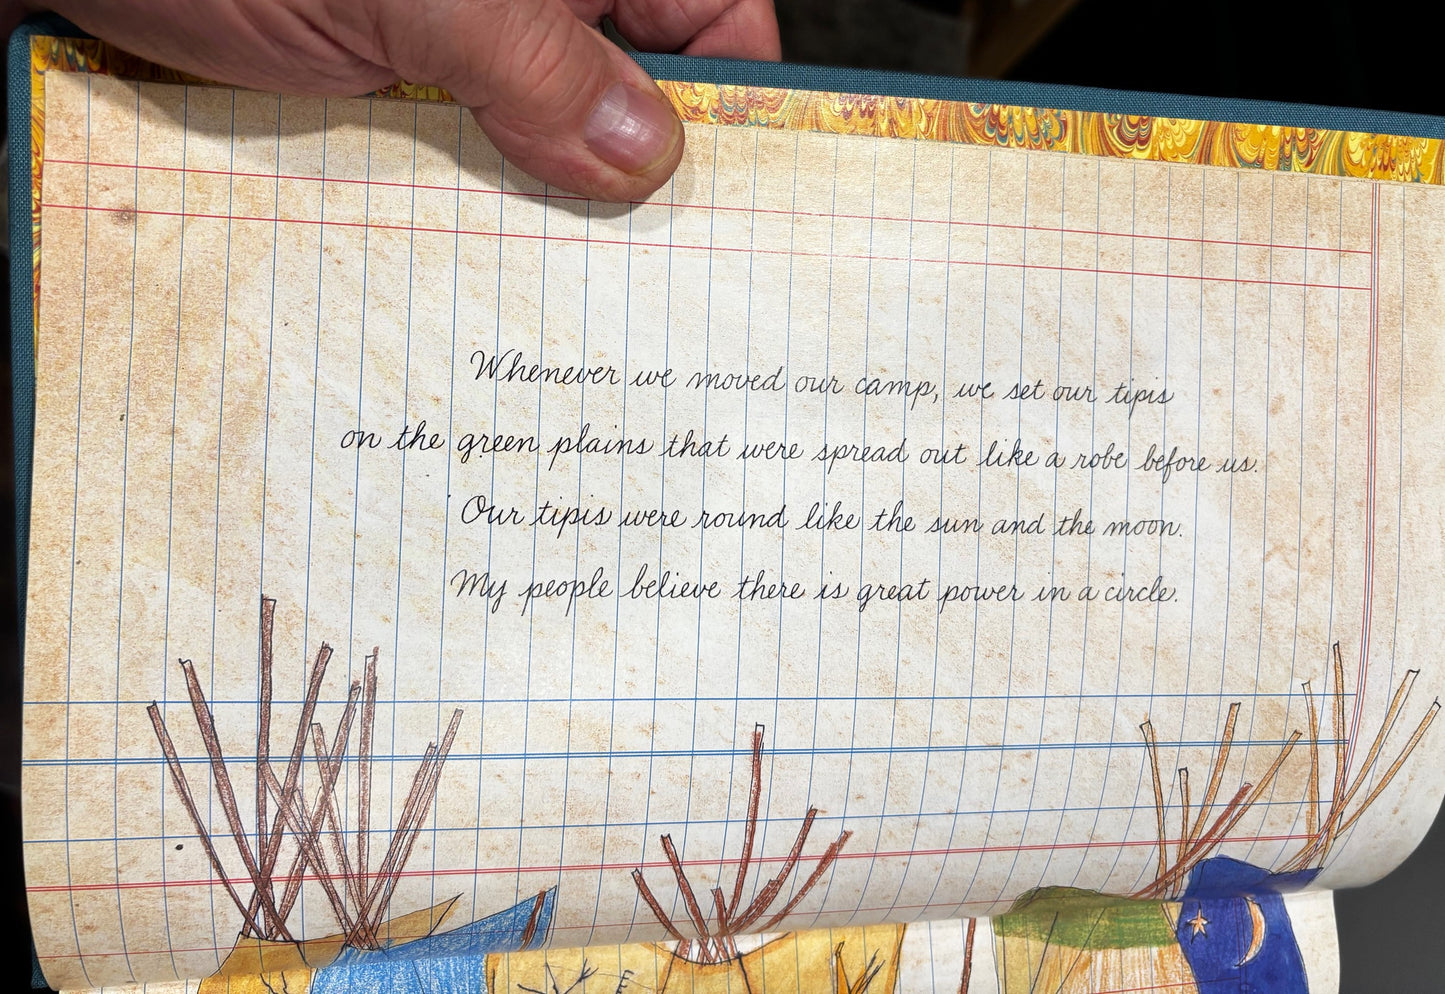 Whenever we moved our camp, we set our tipis
on the green plains that were spread out like a robe before us.
Our tipis were round like the sun and the moon.
My people believe there is great power in a circle.